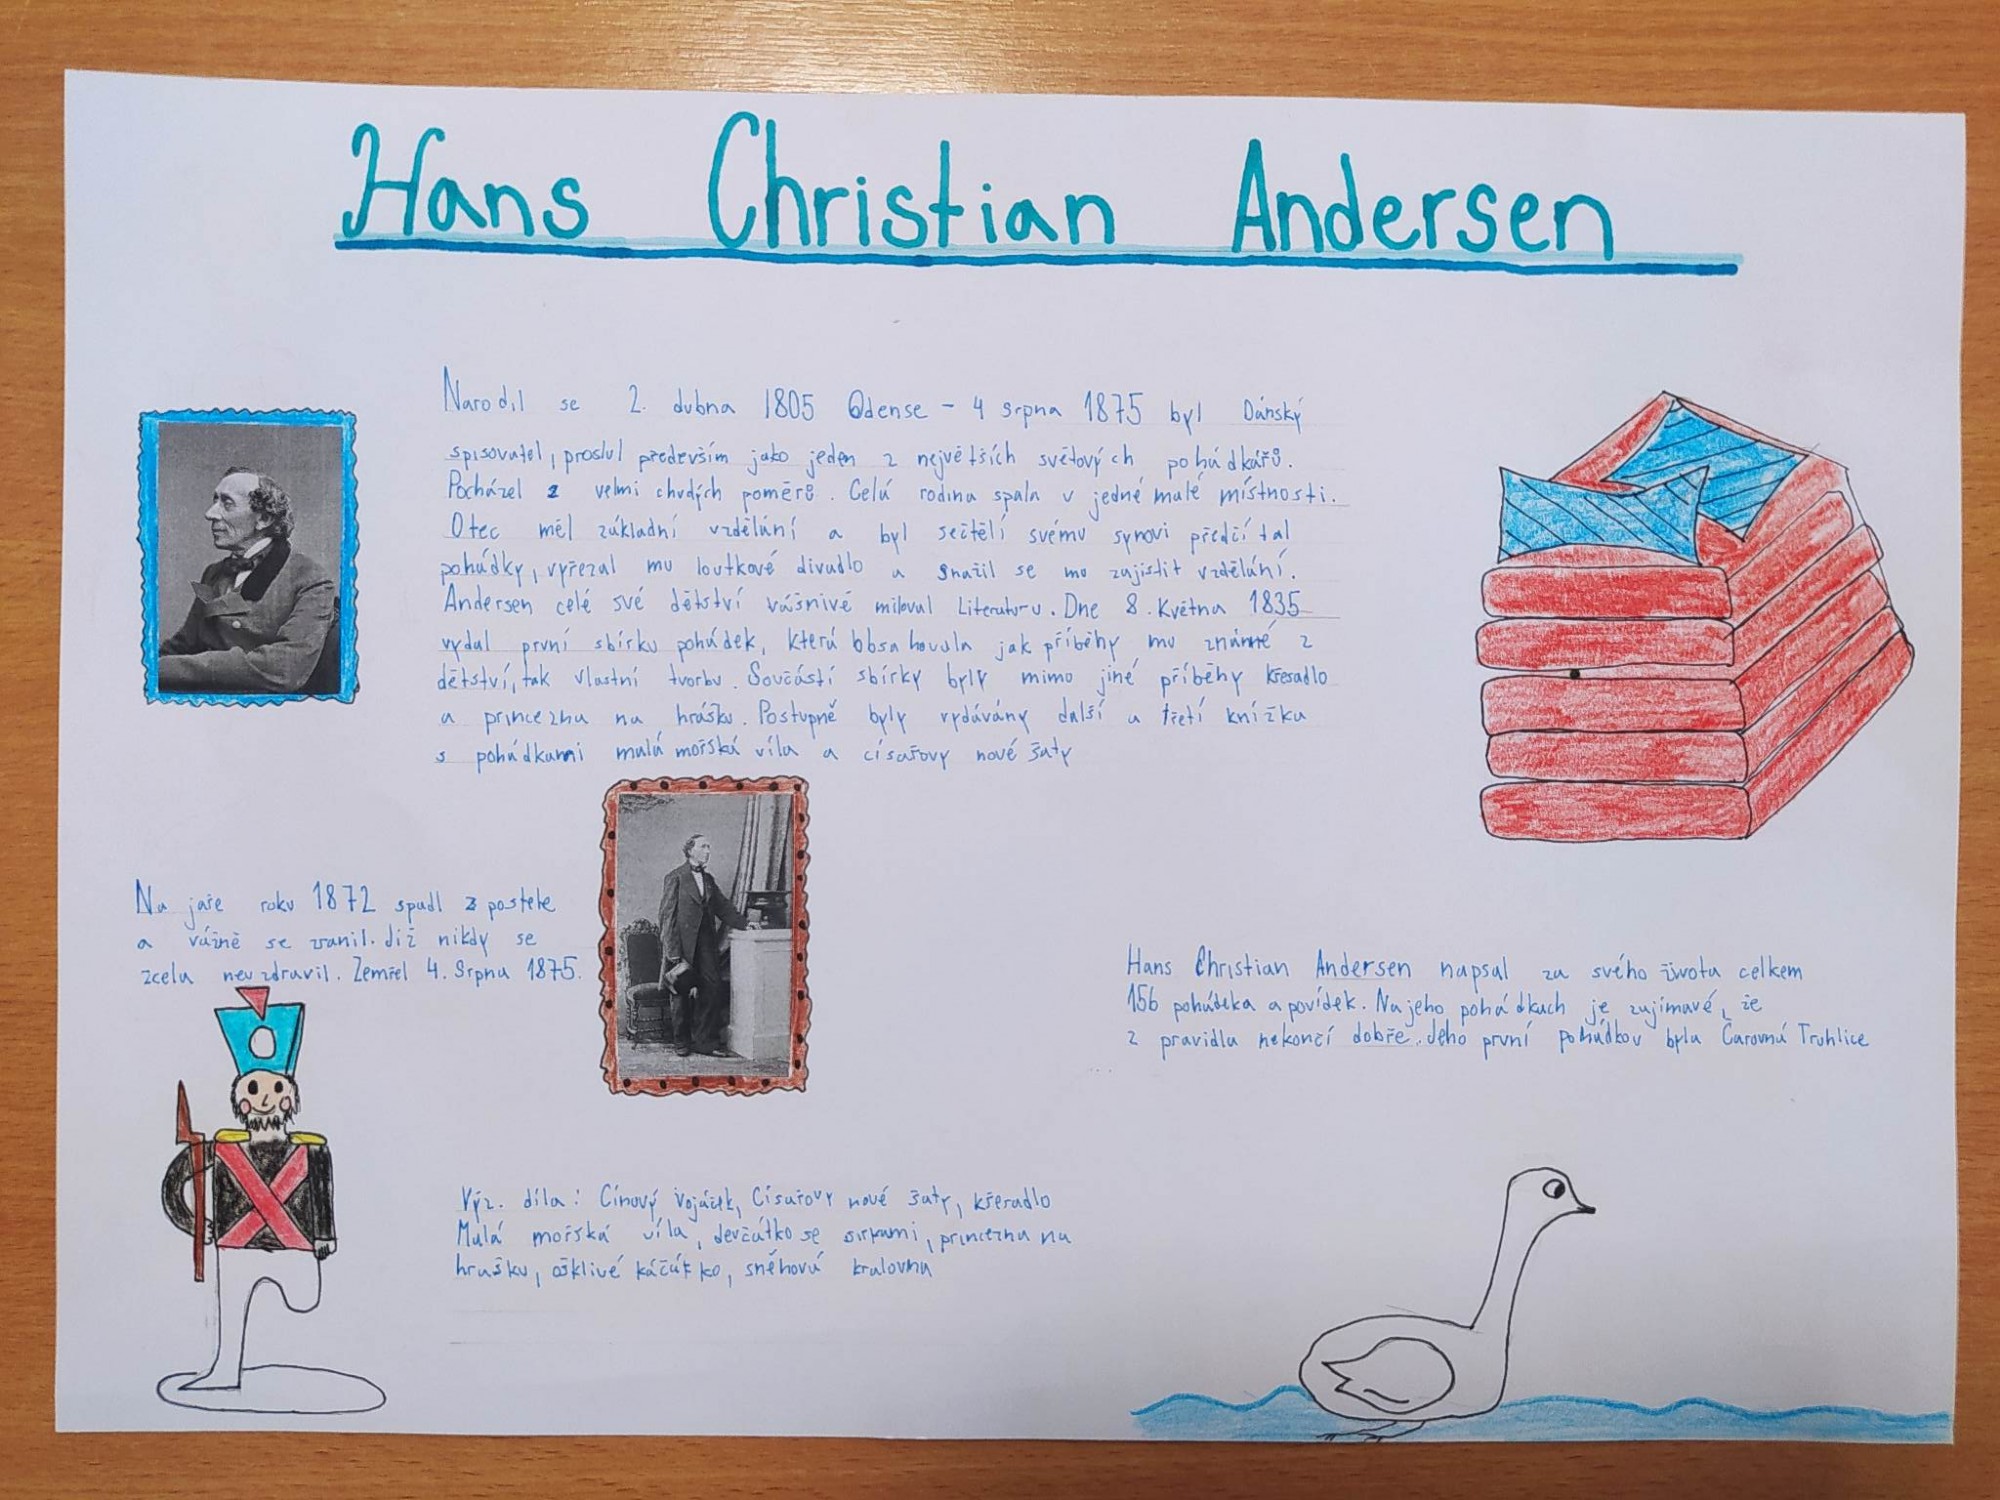 Hans Christian Andersen
Narodil se 2. dubna 1805 Odense - 4 srpna 1875 byl Dánský
spisovatel, proslul především jako jeden z největších světových pohádkářů.
Pocházel z velmi chudých poměrů. Celá rodina spala v jedné malé místnosti.
Otec měl základní vzdělání a byl sečtělí svému synovi předčítal
pohádky, vyřezal mu loutkové divadlo a snažil se mu zajistit vzdělání.
Andersen celé své dětství vášnivě miloval Literaturu. Dne 8. Května 1835
vydal první sbírku pohádek, která obsahovala jak příběhy mu známé z
dětství, tak vlastní tvorbu. Součástí sbírky byly mimo jiné příběhy křesadlo
a princezna na hrášku. Postupně byly vydávány další a třetí knížka
s pohádkami malá mořská víla a císařovy nové šaty
Na jaře roku 1872 spadl z postele
a vážně se zranil. Již nikdy se
zcela neuzdravil. Zemřel 4. Srpna 1875.
Hans Christian Andersen napsal za svého života celkem
156 pohádeka a povídek. Na jeho pohádkách je zajímavé, že
z pravidla nekončí dobře. Jeho první pohádkov byla Čarovná Truhlice
Výz. díla: Cínový Vojáček, Císařovy nové šaty, křesadlo
Malá mořská víla, děvčátko se sirkami, princezna na
hrášku, ošklivé káčátko, sněhová kralovna